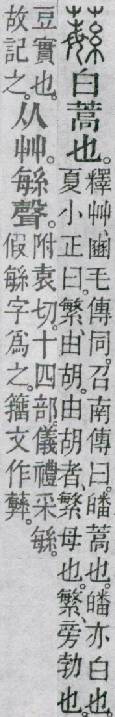 蘩白蒿也。釋艸毛傳同。召南傳曰。皤蒿也。皤亦白也。
夏小正曰。繁、由胡。由胡者、繁母也。繁、旁勃也。
豆實也。故記之。从艸。緐聲。附袁切。十四部。儀禮采緐。
假緐字爲之。籒文作